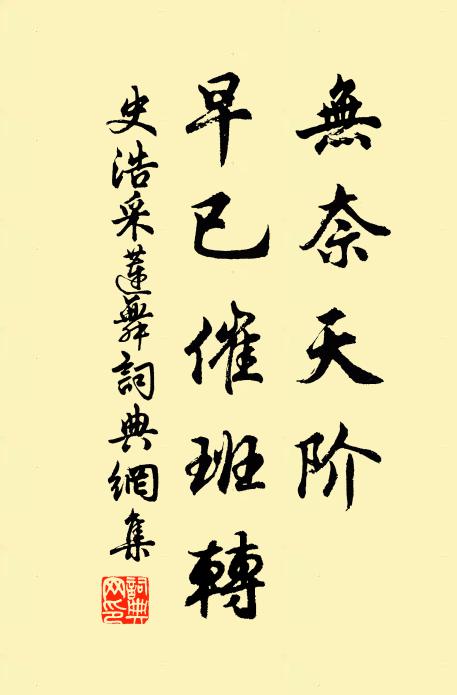 無奈天阶
早已催班轉
史浩采蓮舞詞典網集
詞典网印